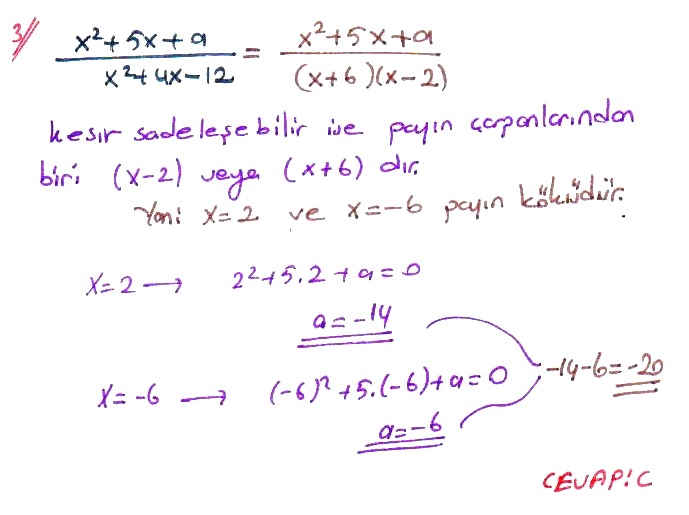 3/ x²+5x+a / x²+4x-12 = x²+5x+a / (x+6)(x-2)
kesir sadeleşebilir ise payın çarpanlarından
biri (x-2) veya (x+6) dır.
Yani x=2 ve x=-6 payın köküdür.
x=2 → 2²+5.2+a=0
a=-14
-14-6=-20
x=-6 → (-6)²+5.(-6)+a=0
a=-6
CEVAP: C